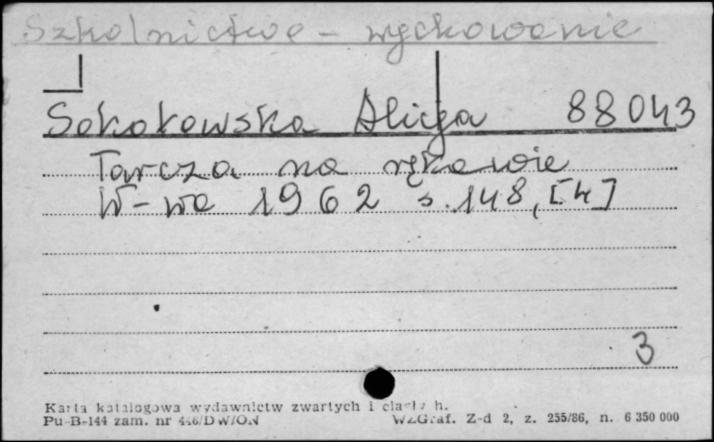 Szkolnictwo - wychowanie
Sokołowska Alicja 88043
Tarcza na rękawie
W-wa 1962 s. 148, [4]
3
Karta katalogowa wydawnictw zwartych i ciągłych
Pu-B-144 zam. nr 446/DW/ON WZGraf. Z-d 2, z. 255/86, n. 6 350 000